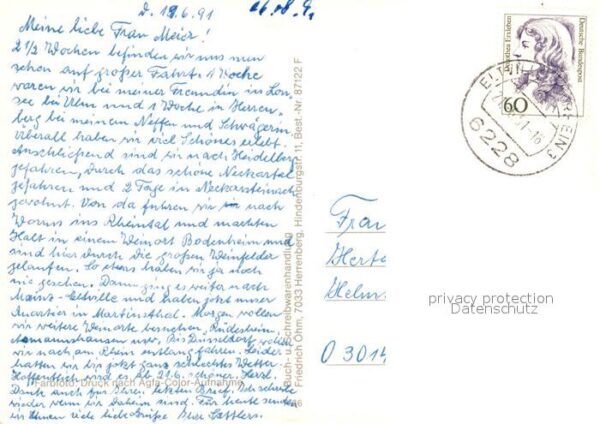 D. 19.6.91
Meine liebe Frau Meier!
2 1/2 Wochen befinden wir uns nun
schon auf großer Fahrt. 1 Woche
waren wir bei meiner Freundin in Lon-
see bei Ulm und 1 Woche in Herren-
berg bei meinem Neffen und Schwägerin.
Überall haben wir viel Schönes erlebt.
Anschließend sind wir nach Heidelberg
gefahren, durch das schöne Neckartal
gefahren und 2 Tage in Neckarsteinach
gewohnt. Von da fuhren wir nach
Worms ins Rheintal und machten
Halt in einem Weinort Bodenheim und
sind hier durch die großen Weinfelder
gelaufen. So etwas haben wir ja noch
nie gesehen. Dann ging es weiter nach
Mainz - Eltville und haben jetzt unser
Quartier in Martinsthal. Morgen wollen
wir weitere Weinorte besuchen, Rüdesheim,
Assmannshausen usw. Bis Düsseldorf wollen
wir nach am Rhein entlang fahren. Leider
hatten wir bis jetzt ganz schlechtes Wetter.
Hoffentlich wird es ab 21.6. schöner. Herzl.
Dank auch für Ihren letzten Brief. Ich schreibe
wieder wenn wir daheim sind. Für heute senden
wir Ihnen viele liebe Grüße Ihre Sattlers.
Farbfoto: Druck nach Agfa-Color-Aufnahme
Buch- u. Schreibwarenhandlung
Friedrich Ohm, 7033 Herrenberg, Hindenburgstr. 11, Best.-Nr. 87122 F
Dorothea Erxleben
Deutsche Bundespost
60
6228
Frau
Herta
Helm
O 3014
privacy protection
Datenschutz